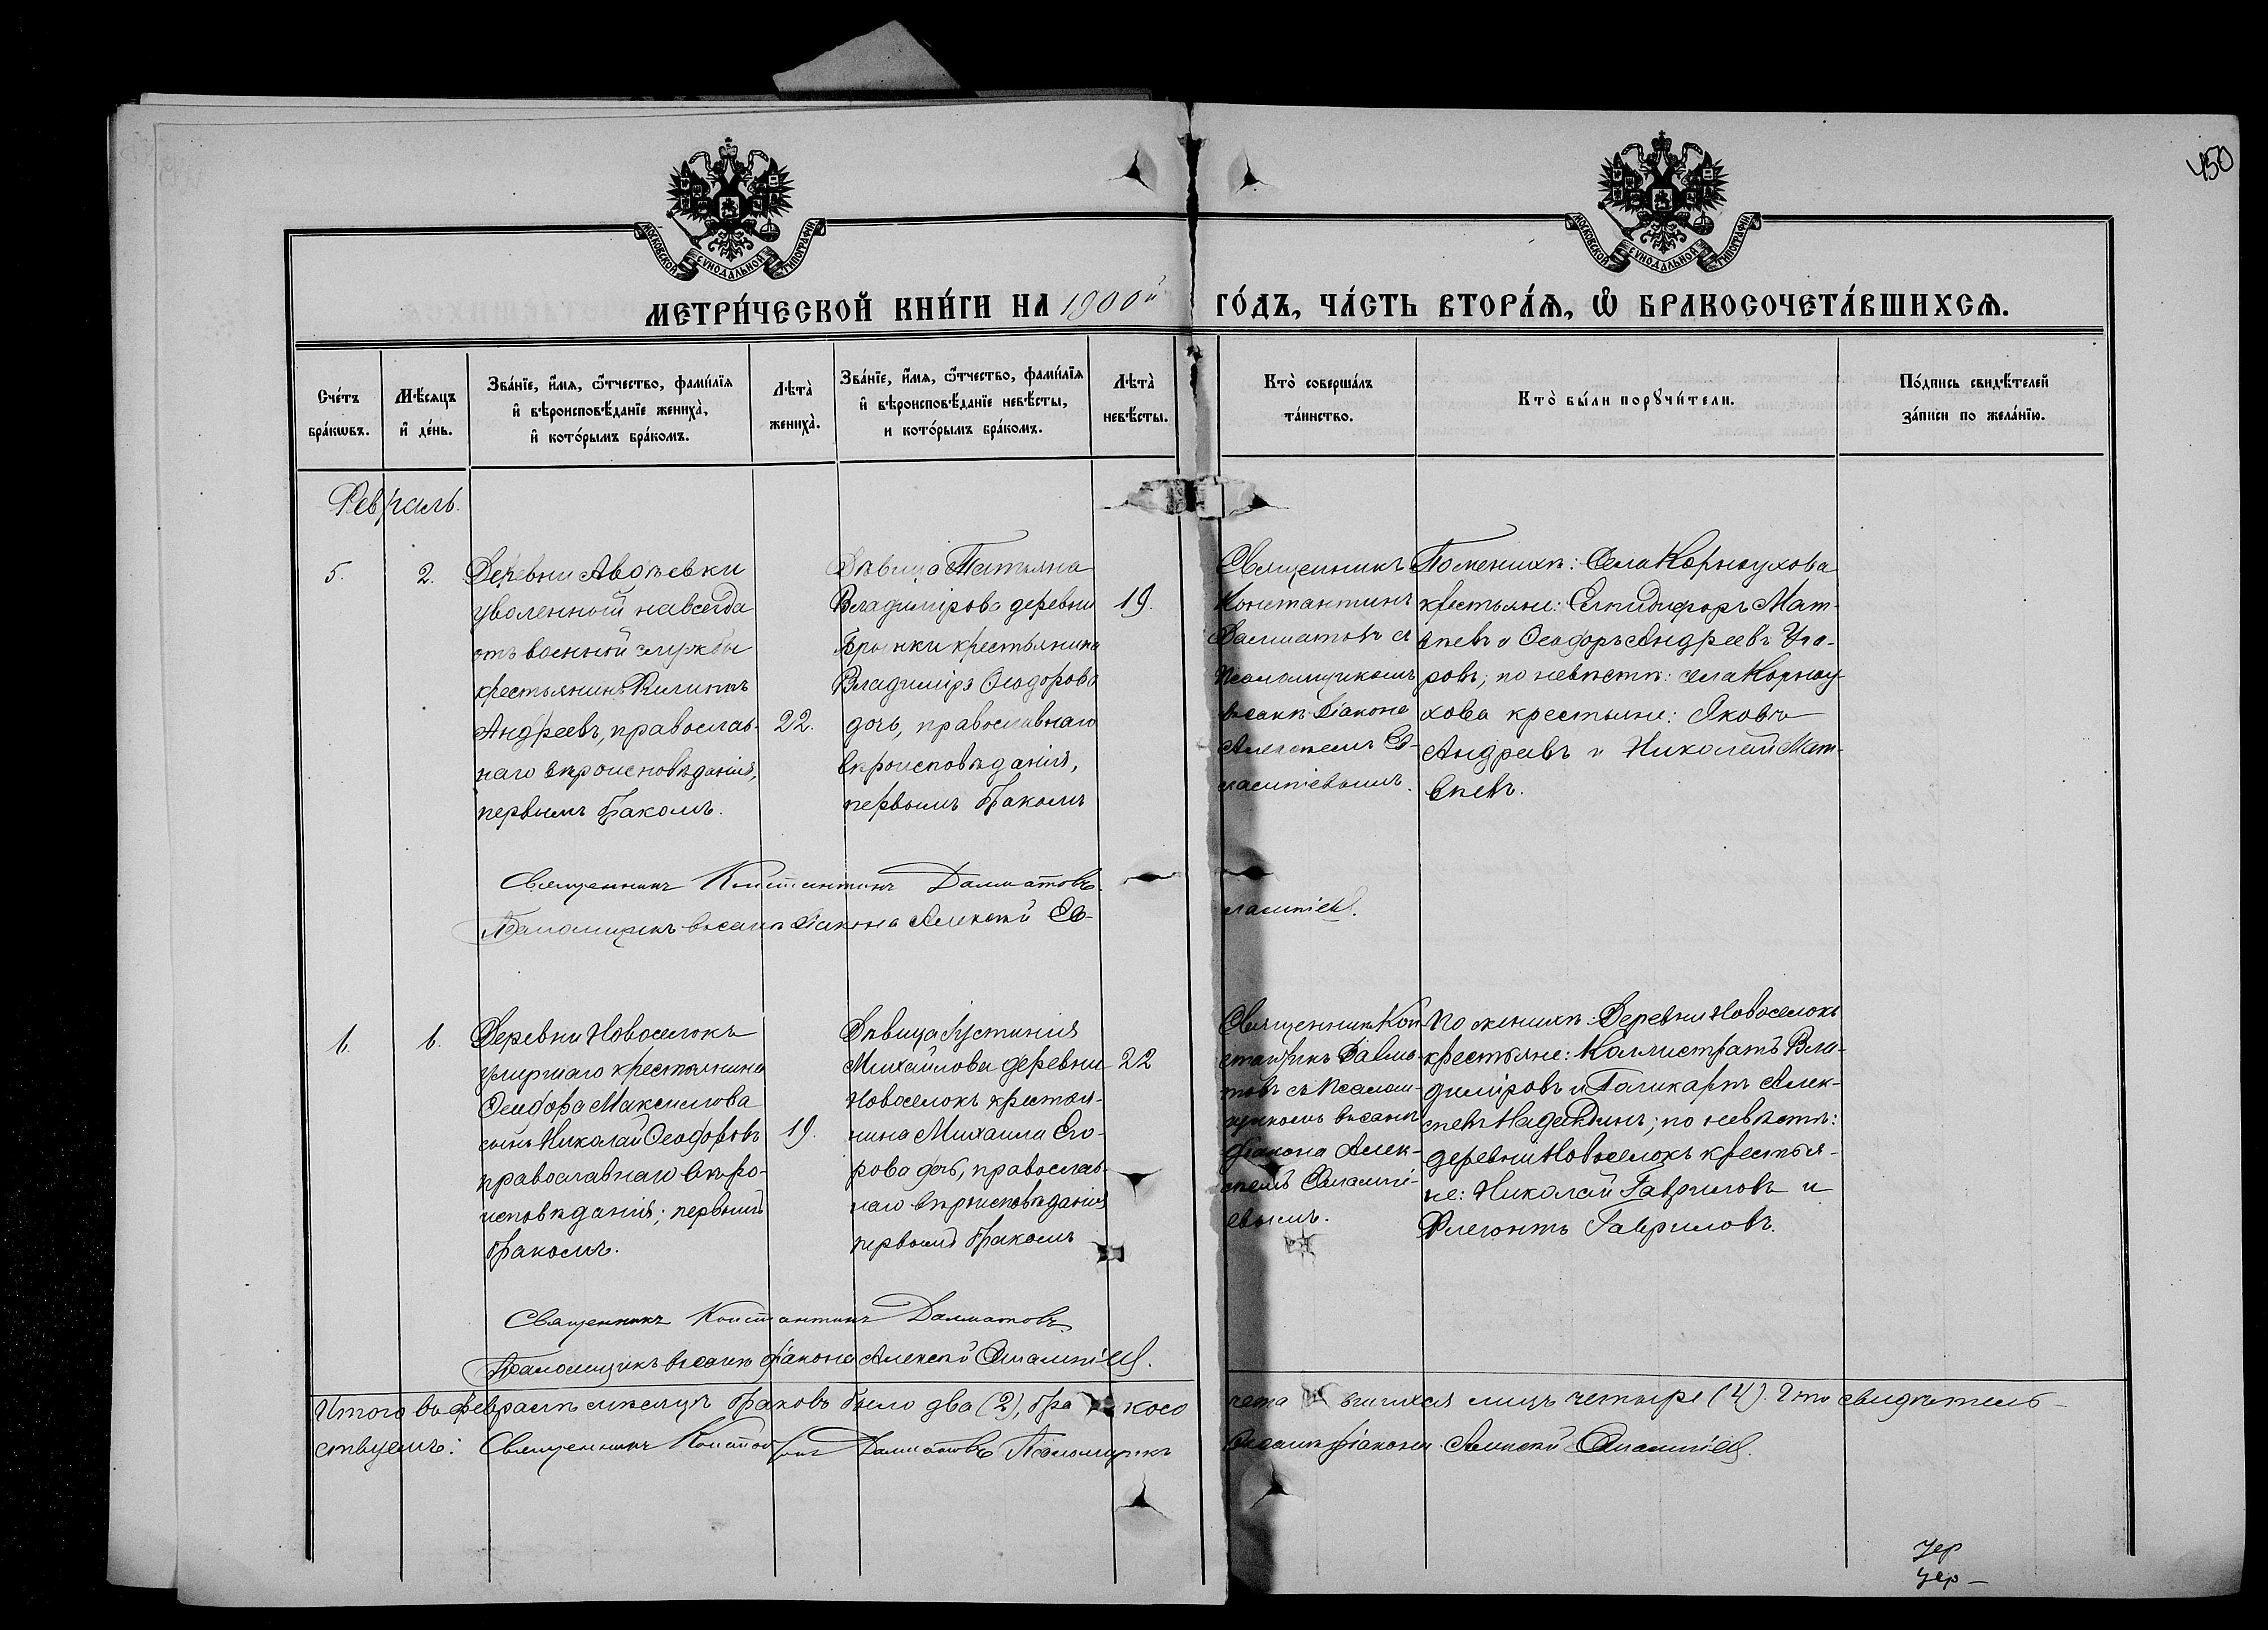 450
МОСКОВСКОЙ СУНОДАЛЬНОЙ ТИПОГРАФІИ
МОСКОВСКОЙ СУНОДАЛЬНОЙ ТИПОГРАФІИ
МЕТРИ́ЧЕСКОЙ КНИ́ГИ НА 1900й ГО́ДЪ, ЧА́СТЬ ВТОРА́Ѧ, Ѽ БРАКОСОЧЕТА́ВШИХСѦ.
Сче́тъ
бра́кѡвъ.
Мѣ́сяцъ
и҆ де́нь.
Зва́нїе, и҆́мя, ѻ҆́тчество, фами́лїя
и҆ вѣроисповѣ́данїе жениха̀,
и҆ кото́рымъ бра́комъ.
Лѣта̀
жениха̀.
Зва́нїе, и҆́мя, ѻ҆́тчество, фами́лїя
и҆ вѣроисповѣ́данїе невѣ́сты,
и кото́рымъ бра́комъ.
Лѣта̀
невѣ́сты.
Кто̀ соверша́лъ
та́инство.
Кто̀ бы́ли порꙋчи́тели.
По́дпись свидѣ́телей
за́писи по жела́нїю.
Февраль.
5.
2.
Деревни Авдѣевки
уволенный навсегда
отъ военной службы
крестьянинъ Филиппъ
Андреевъ, православ-
наго вѣроисповѣданія,
первымъ бракомъ.
22.
Дѣвица Татьяна
Владимірова деревни
крестьянина
Владиміра Ѳеодорова
дочь, православнаго
вѣроисповѣданія,
первымъ бракомъ
19.
Священникъ
Константинъ
Далматовъ съ
Псаломщикомъ
въ санѣ Діакона
Алексѣемъ Ев-
лампіевымъ.
По женихѣ: Села Корноухова
крестьяне: Елпидифоръ Мат-
вѣевъ и Ѳеодоръ Андреевъ Уга-
ровъ; по невѣстѣ: села Корноу-
хова крестьяне: Яковъ
Андреевъ и Николай Мат-
вѣевъ.
Священникъ Константинъ Далматовъ.
Псаломщикъ въ санѣ діакона Алексѣй Ев-
лампіевъ.
6.
6.
Деревни Новоселокъ
умершаго крестьянина
Ѳеодора Максимова
сынъ Николай Ѳеодоровъ
православнаго вѣро-
исповѣданія; первымъ
бракомъ.
19.
Дѣвица Іустинія
Михайлова деревни
Новоселокъ крестья-
нина Михаила Его-
рова дочь, православ-
наго вѣроисповѣданія
первымъ бракомъ
22
Священникъ Кон-
стантинъ Далма-
товъ съ Псалом-
щикомъ въ санѣ
діакона Алек-
сѣемъ Евлампі-
евымъ.
По женихѣ: Деревни Новоселокъ
крестьяне: Каллистратъ Вла-
диміровъ и Поликарпъ Алек-
сѣевъ Надеждинъ; по невѣстѣ:
деревни Новоселокъ крестья-
не: Николай Гавриловъ и
Флегонтъ Гавриловъ.
Священникъ Константинъ Далматовъ.
Псаломщикъ въ санѣ діакона Алексѣй Евлампіевъ.
Итого въ февралѣ мѣсяцѣ браковъ было два (2), бракосочетавшихся лицъ четыре (4). Что свидѣтель-
ствуемъ: Священникъ Константинъ Далматовъ Псаломщикъ въ санѣ діакона Алексѣй Евлампіевъ.